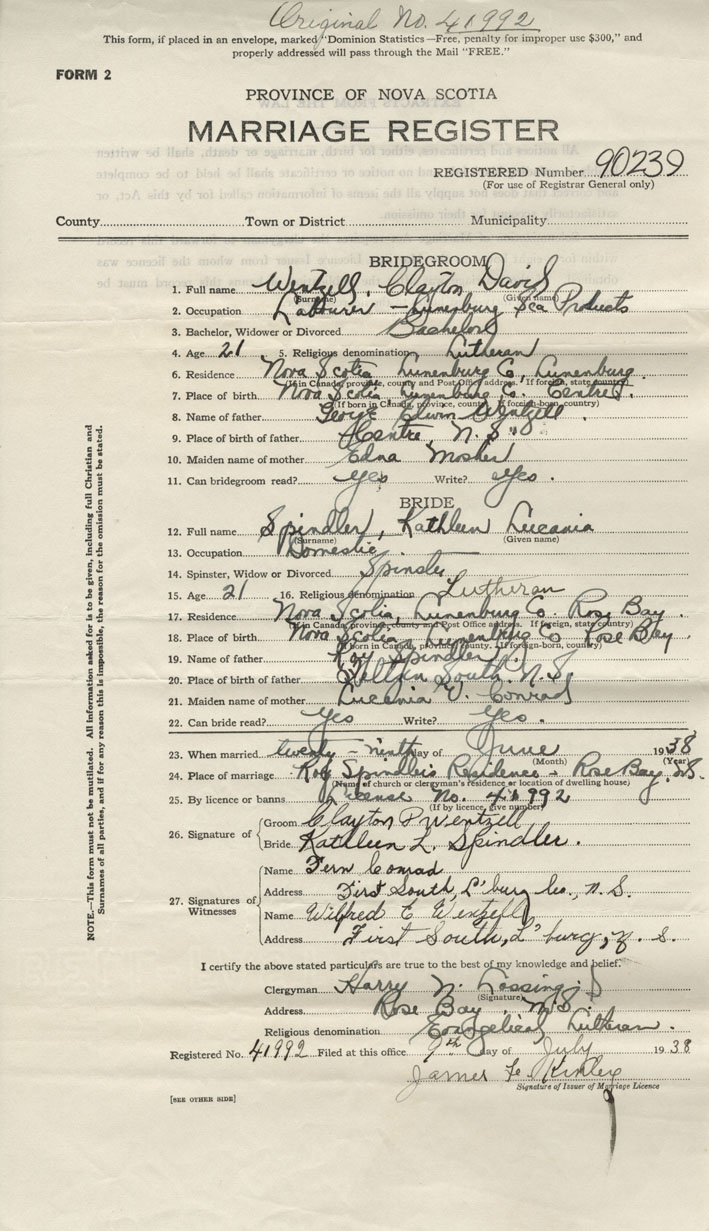 Original No. 41992
This form, if placed in an envelope, marked "Dominion Statistics—Free, penalty for improper use $300," and
properly addressed will pass through the Mail "FREE."
FORM 2
PROVINCE OF NOVA SCOTIA
MARRIAGE REGISTER
REGISTERED Number 90239
(For use of Registrar General only)
County Town or District Municipality
BRIDEGROOM
1. Full name Wentzell, Clayton David
(Surname) (Given name)
2. Occupation Labourer - Lunenburg Sea Products
3. Bachelor, Widower or Divorced Bachelor
4. Age 21 5. Religious denomination Lutheran
6. Residence Nova Scotia, Lunenburg Co, Lunenburg
(If in Canada, province, county and Post Office address. If foreign, state country)
7. Place of birth Nova Scotia, Lunenburg Co. Centre
(If born in Canada, province, county. If foreign-born, country)
8. Name of father George Wentzell
9. Place of birth of father Centre, N.S.
10. Maiden name of mother Edna Mosher
11. Can bridegroom read? yes Write? yes.
BRIDE
12. Full name Spindler, Kathleen Lucania
(Surname) (Given name)
13. Occupation Domestic
14. Spinster, Widow or Divorced Spinster
15. Age 21 16. Religious denomination Lutheran
17. Residence Nova Scotia, Lunenburg Co. Rose Bay
(If in Canada, province, county and Post Office address. If foreign, state country)
18. Place of birth Nova Scotia, Lunenburg Co Rose Bay
(If born in Canada, province, county. If foreign-born, country)
19. Name of father Roy Spindler
20. Place of birth of father South, N.S.
21. Maiden name of mother Lucania V. Conrad
22. Can bride read? yes Write? yes.
23. When married twenty-ninth day of June 1938
(Month) (Year)
24. Place of marriage Roy Spindler's Residence - Rose Bay, N.S.
(Name of church or clergyman's residence or location of dwelling house)
25. By licence or banns License No. 41992
(If by licence, give number)
26. Signature of Groom Clayton Wentzell
Bride Kathleen L. Spindler.
27. Signatures of Witnesses Name Fern Conrad
Address First South, L'burg Co., N.S.
Name Wilfred E Wentzell
Address First South, L'burg, N.S.
I certify the above stated particulars are true to the best of my knowledge and belief.
Clergyman Harry N. Lossing
(Signature)
Address Rose Bay, N.S.
Religious denomination Evangelical Lutheran.
Registered No. 41992 Filed at this office 9th day of July 1938
James Kinley
Signature of Issuer of Marriage Licence
[SEE OTHER SIDE]
NOTE.—This form must not be mutilated. All information asked for is to be given, including full Christian and
Surnames of all parties, and if for any reason this is impossible, the reason for the omission must be stated.